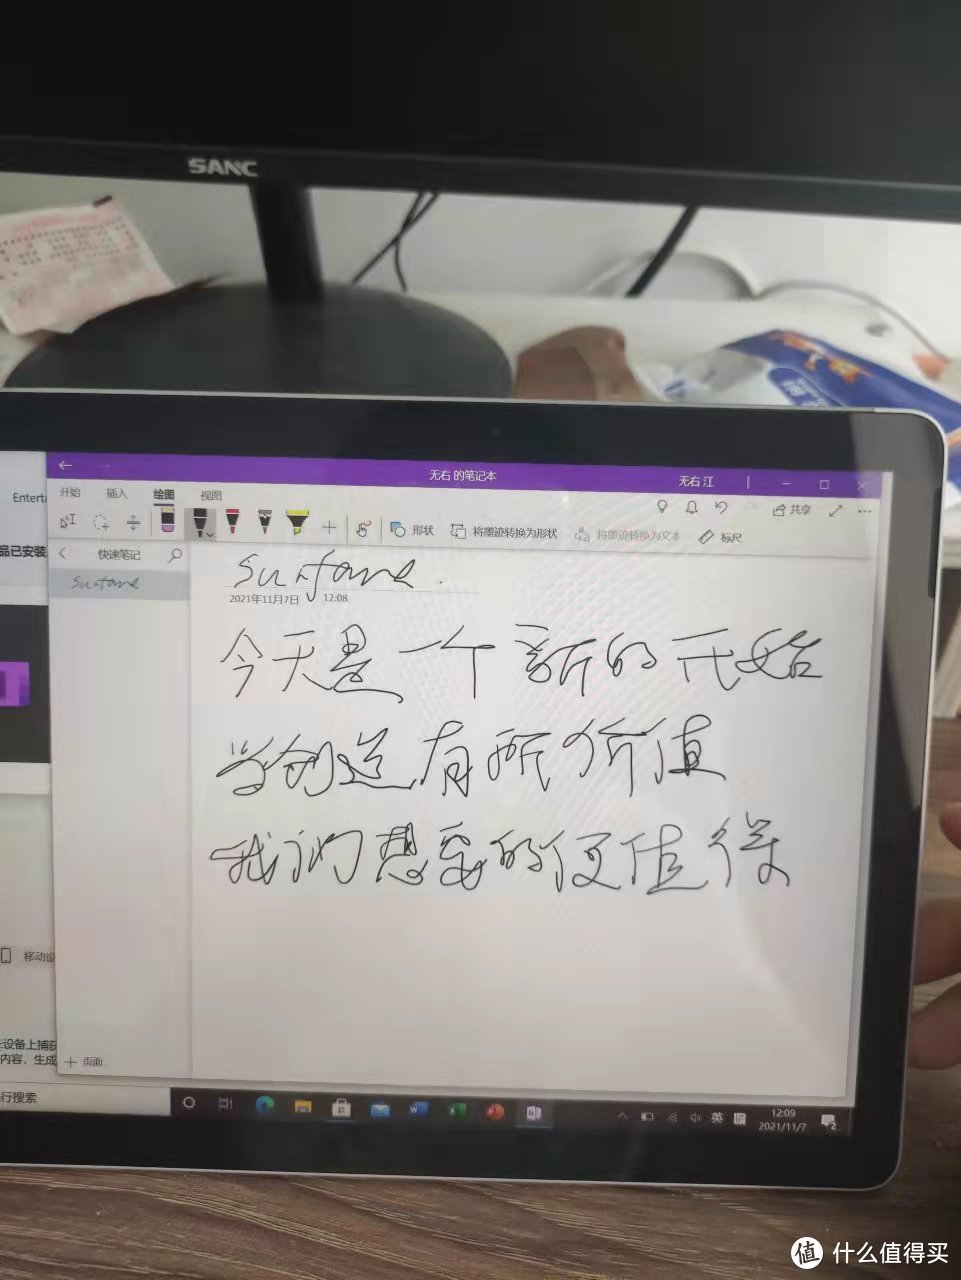 SANC
无右 的笔记本
无右 江
Enterta
开始 插入 绘图 视图
共享
形状 将墨迹转换为形状 将墨迹转换为文本 标尺
品已安装
快速笔记
surface
surface.
2021年11月7日 12:08
今天是一个新的开始
学创造有所价值
我们想要的便值得
移动设
设备上捕获
内容，生成
页面
行搜索
英 拼
12:09
2021/11/7
2
值 什么值得买